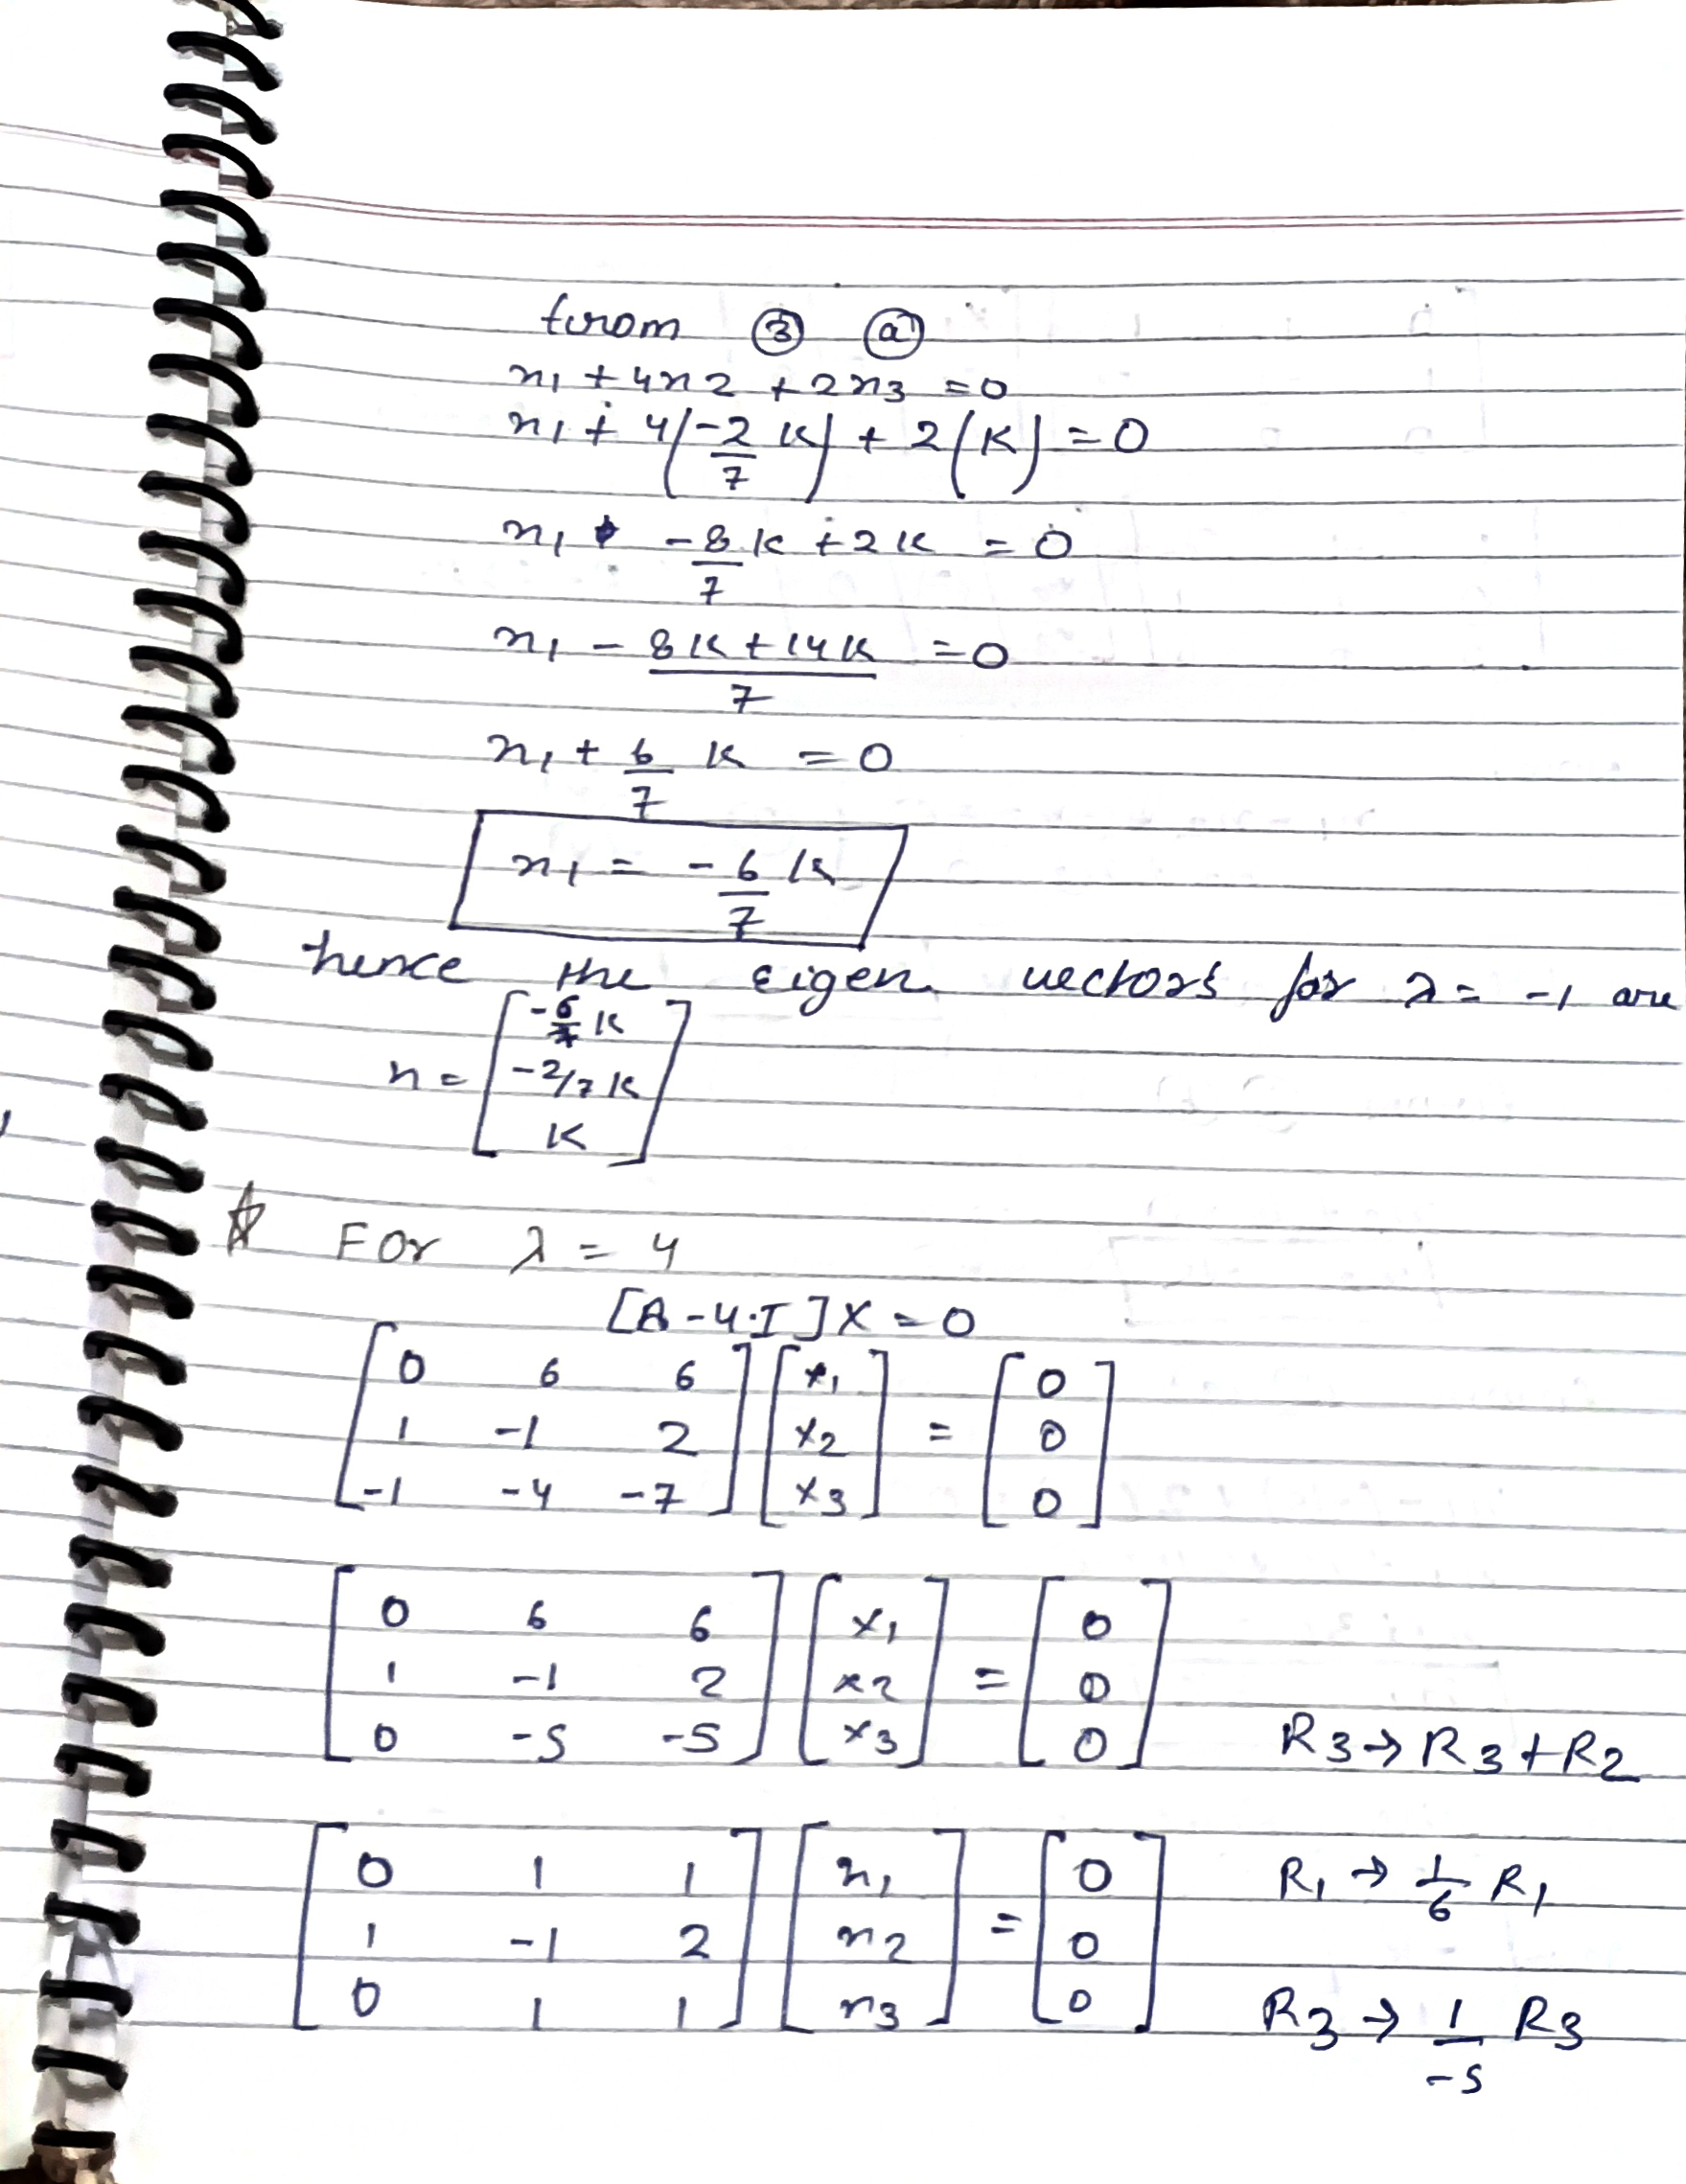 from ③ ⓐ
x₁ + 4x2 + 2x3 = 0
x₁ + 4(-2/7 k) + 2(k) = 0
x₁ -8/7 k + 2k = 0
x₁ - 8k + 14k / 7 = 0
x₁ + 6/7 k = 0
x₁ = -6/7 k
hence the eigen vectors for λ = -1 are
x = [-6/7 k
-2/7 k
k]
☆ For λ = 4
[A - 4·I]X = 0
[0 6 6] [x₁] = [0]
[1 -1 2] [x2] = [0]
[-1 -4 -7] [x3] = [0]
[0 6 6] [x₁] = [0]
[1 -1 2] [x2] = [0]
[0 -5 -5] [x3] = [0] R3 → R3 + R2
[0 1 1] [x₁] = [0] R₁ → 1/6 R₁
[1 -1 2] [x2] = [0]
[0 1 1] [x3] = [0] R3 → 1/-5 R3